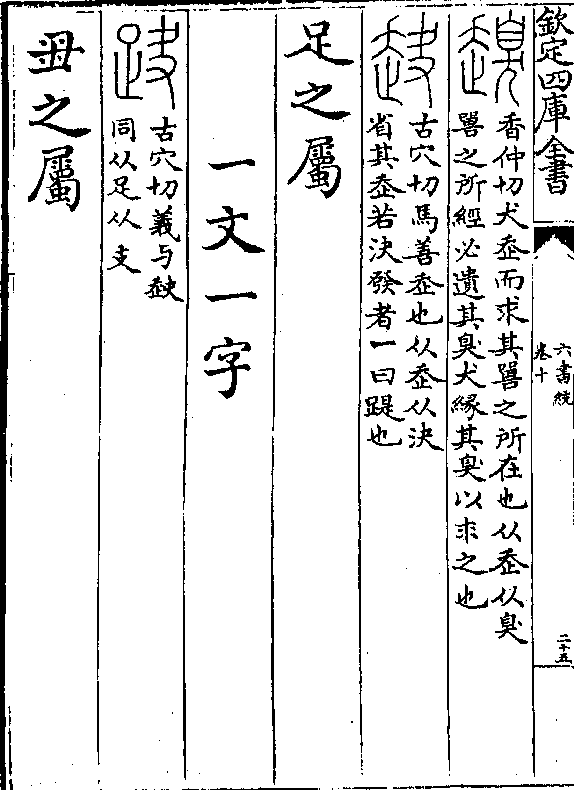 欽定四庫全書
六書統
卷十
二十五
香仲切犬走而求其嘼之所在也从走从臭
嘼之所經必遺其臭犬緣其臭以求之也
古穴切馬善走也从走从決
省其走若決發者一曰踶也
足之屬
一文一字
古穴切義与赽
同从足从支
之屬